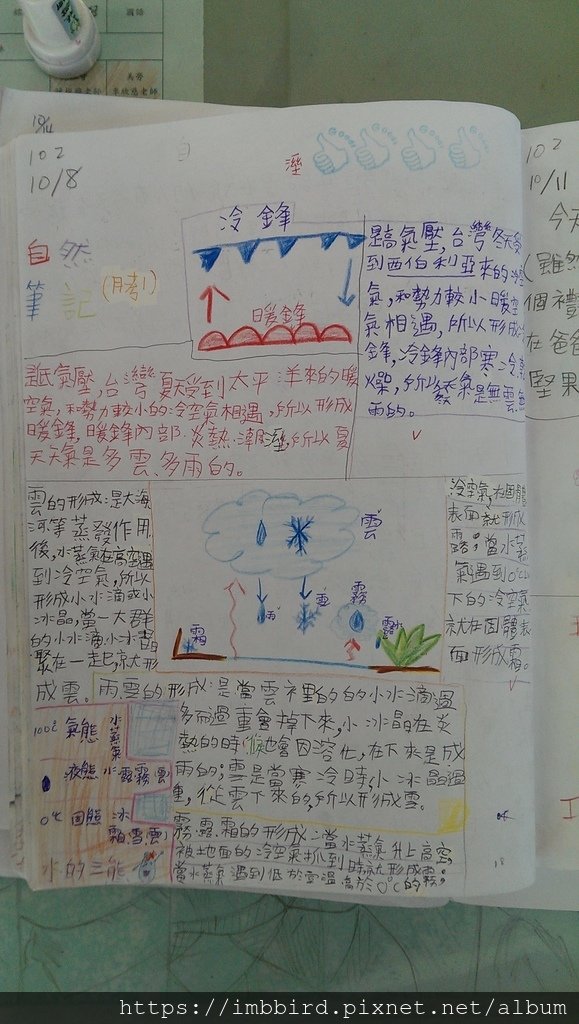 美勞
10/14
102
10/8
自然
筆記
(月考1)
冷鋒
暖鋒
是高氣壓,台灣冬天受
到西伯利亞來的冷空
氣,和勢力較小暖空
氣相遇,所以形成冷
鋒,冷鋒內部寒冷乾
燥,所以天氣是無雲無
雨的。
是低氣壓,台灣夏天受到太平洋來的暖
空氣,和勢力較小的冷空氣相遇,所以形成
暖鋒,暖鋒內部炎熱潮溼,所以夏
天天氣是多雲多雨的。
溼
雲的形成:是大海
河等蒸發作用
後,水蒸氣在高空遇
到冷空氣,所以
形成小水滴或小
冰晶,當一大群
的小水滴小冰晶
聚在一起,就形
成雲。
雲
雨
雪
霧
露
霜
冷空氣,在固體
表面就形成
露;當水蒸
氣遇到0°C以
下的冷空氣
就在固體表
面形成霜。
雨雪的形成:是當雲裡的的小水滴過
多而過重會掉下來,小冰晶在炎
熱的時候也會因溶化,在下來是成
雨的;雪是當寒冷時,小冰晶過
重,從雲下來的,所以形成雪。
100°C 氣態 水蒸氣
液態 水露霧雲
0°C 固態 冰
霜雪雲
水的三態
霧露霜的形成:當水蒸氣升上高空,
被地面的冷空氣抓到時就形成霧;
當水蒸氣遇到低於室溫高於0°C的
18
102
10/11
今天
(雖然
個禮
在爸爸
堅果
https://imbbird.pixnet.net/album